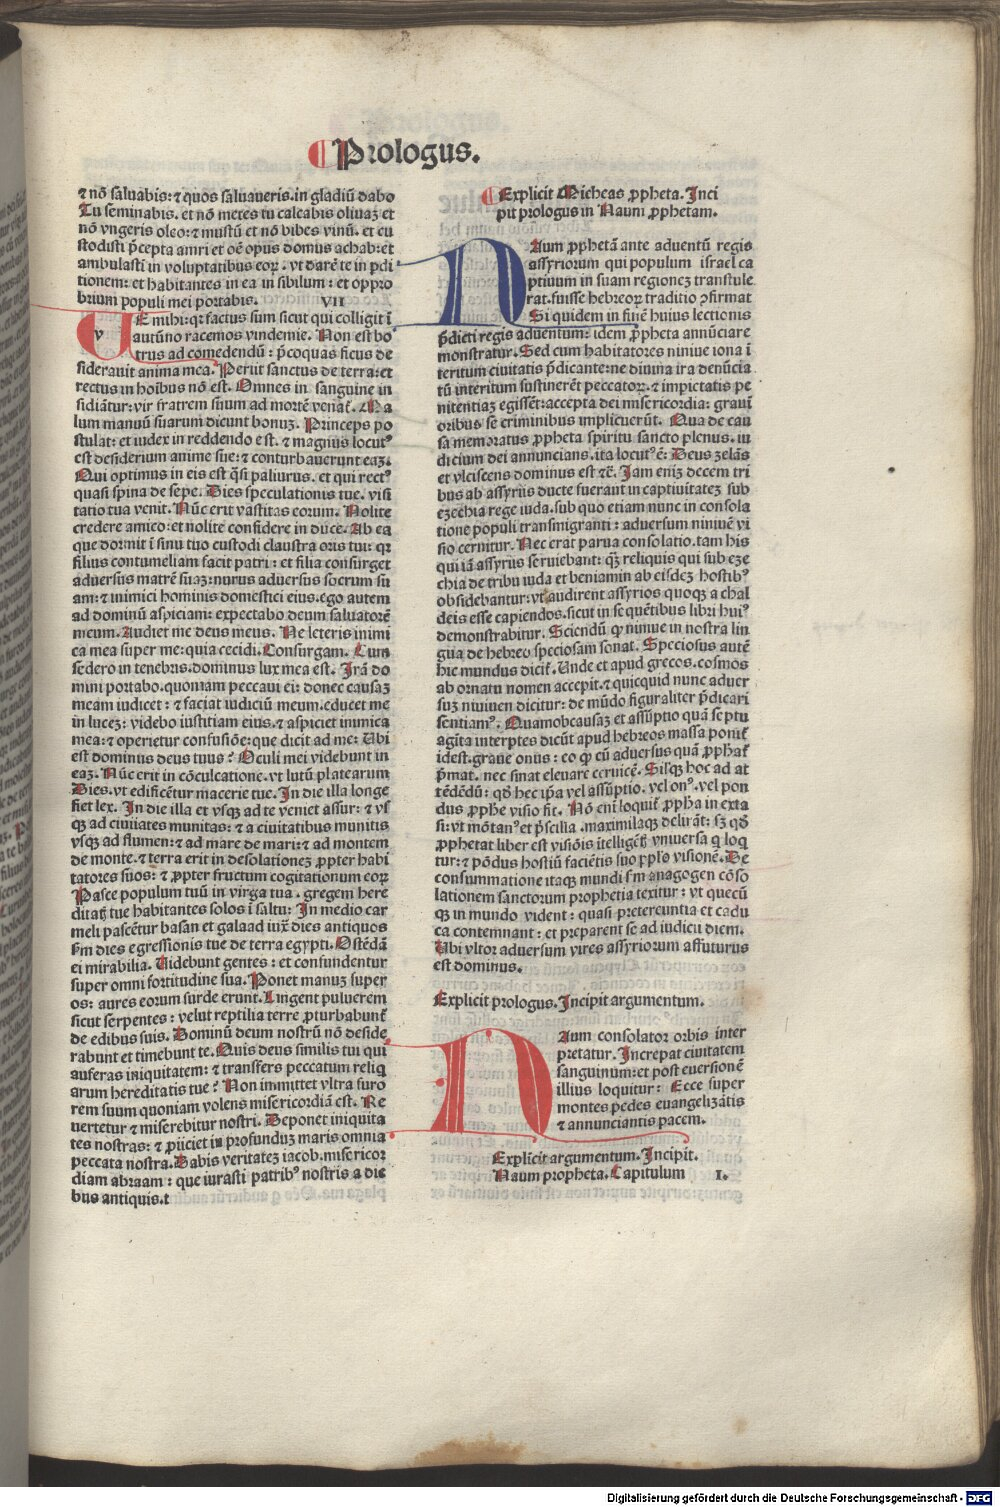 ¶ Prologus.
⁊ nō saluabis: ⁊ quos saluaueris. in gladiū dabo
Tu seminabis. et nō metes tu calcabis oliuaȝ et
nō vngeris oleo: ⁊ mustū et nō bibes vinū. et cu
stodisti p̄cepta amri et oē opus domus achab: et
ambulasti in voluptatibus eoꝝ. vt darē te in ꝑdi
tionem: et habitantes in ea in sibilum: et oppro
brium populi mei portabis. VII
VE mihi: qꝛ factus sum sicut qui colligit ī
autūno racemos vindemie. Non est bo
trus ad comedendū: p̄coquas ficus de
siderauit anima mea. Periit sanctus de terra: et
rectus in hoībus nō est. Omnes in sanguine in
sidiātur: vir fratrem suum ad mortē venat᷑. Ma
lum manuū suarum dicunt bonuȝ. Princeps po
stulat: et iudex in reddendo est. ⁊ magnus locutꝰ
est desiderium anime sue: ⁊ conturbauerunt eaȝ.
Qui optimus in eis est q̄si paliurus. et qui rectꝰ
quasi spina de sepe. Dies speculationis tue. visi
tatio tua venit. Nūc erit vastitas eorum. Nolite
credere amico: et nolite confidere in duce. Ab ea
que dormit ī sinu tuo custodi claustra oris tui: qꝛ
filius contumeliam facit patri: et filia consurget
aduersus matrē suaȝ: nurus aduersus socrum su
am: ⁊ inimici hominis domestici eius. ego autem
ad dominū aspiciam: expectabo deum saluatorē
meum. Audiet me deus meus. Ne leteris inimi
ca mea super me: quia cecidi. Consurgam. Cum
sedero in tenebris. dominus lux mea est. Irā do
mini portabo. quoniam peccaui ei: donec causaȝ
meam iudicet: ⁊ faciat iudiciū meum. educet me
in luceȝ: videbo iustitiam eius. ⁊ aspiciet inimica
mea: ⁊ operietur confusiōe: que dicit ad me: Ubi
est dominus deus tuus? Oculi mei videbunt in
eaȝ. Nūc erit in cōculcatione. vt lutū platearum
Dies. vt edificētur macerie tue. In die illa longe
fiet lex. In die illa et vsqꝫ ad te veniet assur: ⁊ vs
qꝫ ad ciuitates munitas: ⁊ a ciuitatibus munitis
vsqꝫ ad flumen: ⁊ ad mare de mari: ⁊ ad montem
de monte. ⁊ terra erit in desolationeȝ ꝓpter habi
tatores suos: ⁊ ꝓpter fructum cogitationum eoꝝ
Pasce populum tuū in virga tua. gregem here
ditatꝭ tue habitantes solos ī saltu: In medio car
meli pascētur basan et galaad iuxͣ dies antiquos
Sꝫm dies egressionis tue de terra egypti. Ostēdā
ei mirabilia. Uidebunt gentes: et confundentur
super omni fortitudine sua. Ponet manuȝ super
os: aures eorum surde erunt. Lingent puluerem
sicut serpentes: velut reptilia terre ꝓturbabunt᷑
de edibus suis. Dominū deum nostrū nō deside
rabunt et timebunt te. Quis deus similis tui qui
auferas iniquitatem: ⁊ transfers peccatum reliq
arum hereditatis tue? Non immittet vltra furo
rem suum quoniam volens misericordiā est. Re
uertetur ⁊ miserebitur nostri. Deponet iniquita
tes nostras: ⁊ ꝓijciet in profunduȝ maris omnia
peccata nostra. Dabis veritateȝ iacob. misericor
diam abraam: que iurasti patribꝰ nostris a die
bus antiquis. t
¶ Explicit Micheas ꝓpheta. Inci
pit prologus in Naum ꝓphetam.
NAum ꝓphetā ante aduentū regis
assyriorum qui populum israel ca
ptiuum in suam regioneȝ transtule
rat. fuisse hebreoꝝ traditio ꝯfirmat
Si quidem in fine huius lectionis
p̄dicti regis aduentum: idem ꝓpheta annūciare
monstratur. Sed cum habitatores niniue iona ī
teritum ciuitatis p̄dicante: ne diuina ira denūcia
tū interitum sustinerēt peccatoꝝ. ⁊ impietatis pe
nitentiaȝ egissēt: accepta dei misericordia: graui
oribus se criminibus implicuerūt. Qua de cau
sa memoratus ꝓpheta spiritu sancto plenus. iu
dicium dei annuncians. ita locutꝰ ē: Deus zelās
et vlciscens dominus est ⁊c̄. Iam eniȝ decem tri
bus ab assyriis ducte fuerant in captiuitateȝ sub
ezechia rege iuda. sub quo etiam nunc in consola
tione populi transmigranti: aduersum niniuē vi
sio cernitur. Nec erat parua consolatio. tam his
qui iā assyriis seruiebant: qꝫ reliquis qui sub eze
chia de tribu iuda et beniamin ab eisdeȝ hostibꝰ
obsidebantur: vt audirent assyrios quoqꝫ a chal
deis esse capiendos. sicut in sequētibus libri huiꝰ
demonstrabitur. Sciendū ꝙ niniue in nostra lin
gua de hebreo speciosam sonat. Speciosus autē
hic mundus dicit᷑. Unde et apud grecos. cosmos
ab ornatu nomen accepit. ⁊ quicquid nunc aduer
suȝ niniuen dicitur: de mūdo figuraliter p̄dicari
sentiamꝰ. Quamobcausaȝ et assūptio quā septu
agīta interp̄tes dicūt apud hebreos massa ponit᷑
idest. graue onus: eo ꝙ cū aduersus quā ꝓphat᷑
p̄mat. nec sinat eleuare ceruicē. Sisqꝫ hoc ad at
tēdēdū: qd̄ hec ip̄a vel assūptio. vel onꝰ. vel pon
dus ꝓphe visio sit. Nō enī loquit᷑ ꝓpha in exta
si: vt mōtanꝰ et p̄scilia. maximilaqꝫ delirāt: sꝫ qd̄
ꝓphetat liber est visiōis ītelligētꝭ vniuersa q̄ loq
tur: ⁊ pōdus hostiū faciētis suo ꝓplo visionē. De
consummatione itaqꝫ mundi sꝫm anagogen cōso
lationem sanctorum prophetia texitur: vt quecū
qꝫ in mundo vident: quasi pretereuntia et cadu
ca contemnant: et preparent se ad iudicii diem.
Ubi vltor aduersum vires assyriorum affuturus
est dominus.
Explicit prologus. Incipit argumentum.
NAum consolator orbis inter
pretatur. Increpat ciuitatem
sanguinum: et post euersionē
illius loquitur: Ecce super
montes pedes euangelizātis
⁊ annunciantis pacem.
Explicit argumentum. Incipit.
Naum propheta. Capitulum I.
Digitalisierung gefördert durch die Deutsche Forschungsgemeinschaft - DFG